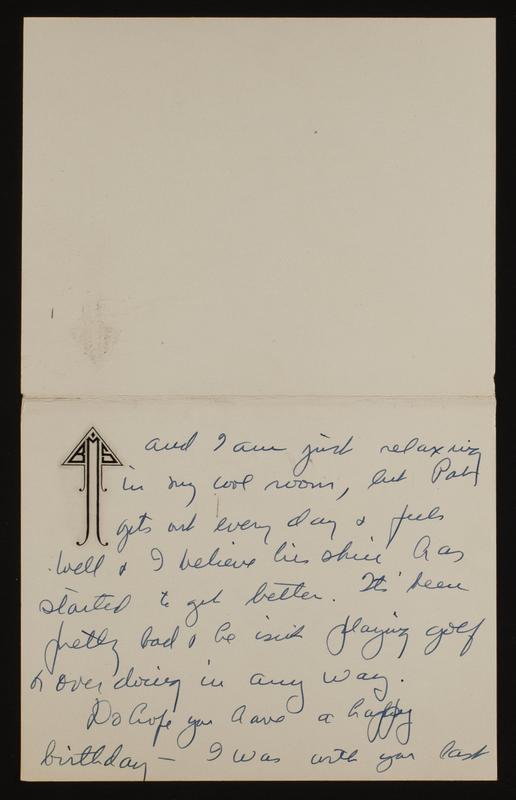 B M S
and I am just relaxing
in my cool room, but Pat
gets out every day & feels
well & I believe his skin has
started to get better. It's been
pretty bad & he isn't playing golf
or over doing in any way.
Do hope you have a happy
birthday — I was with you last